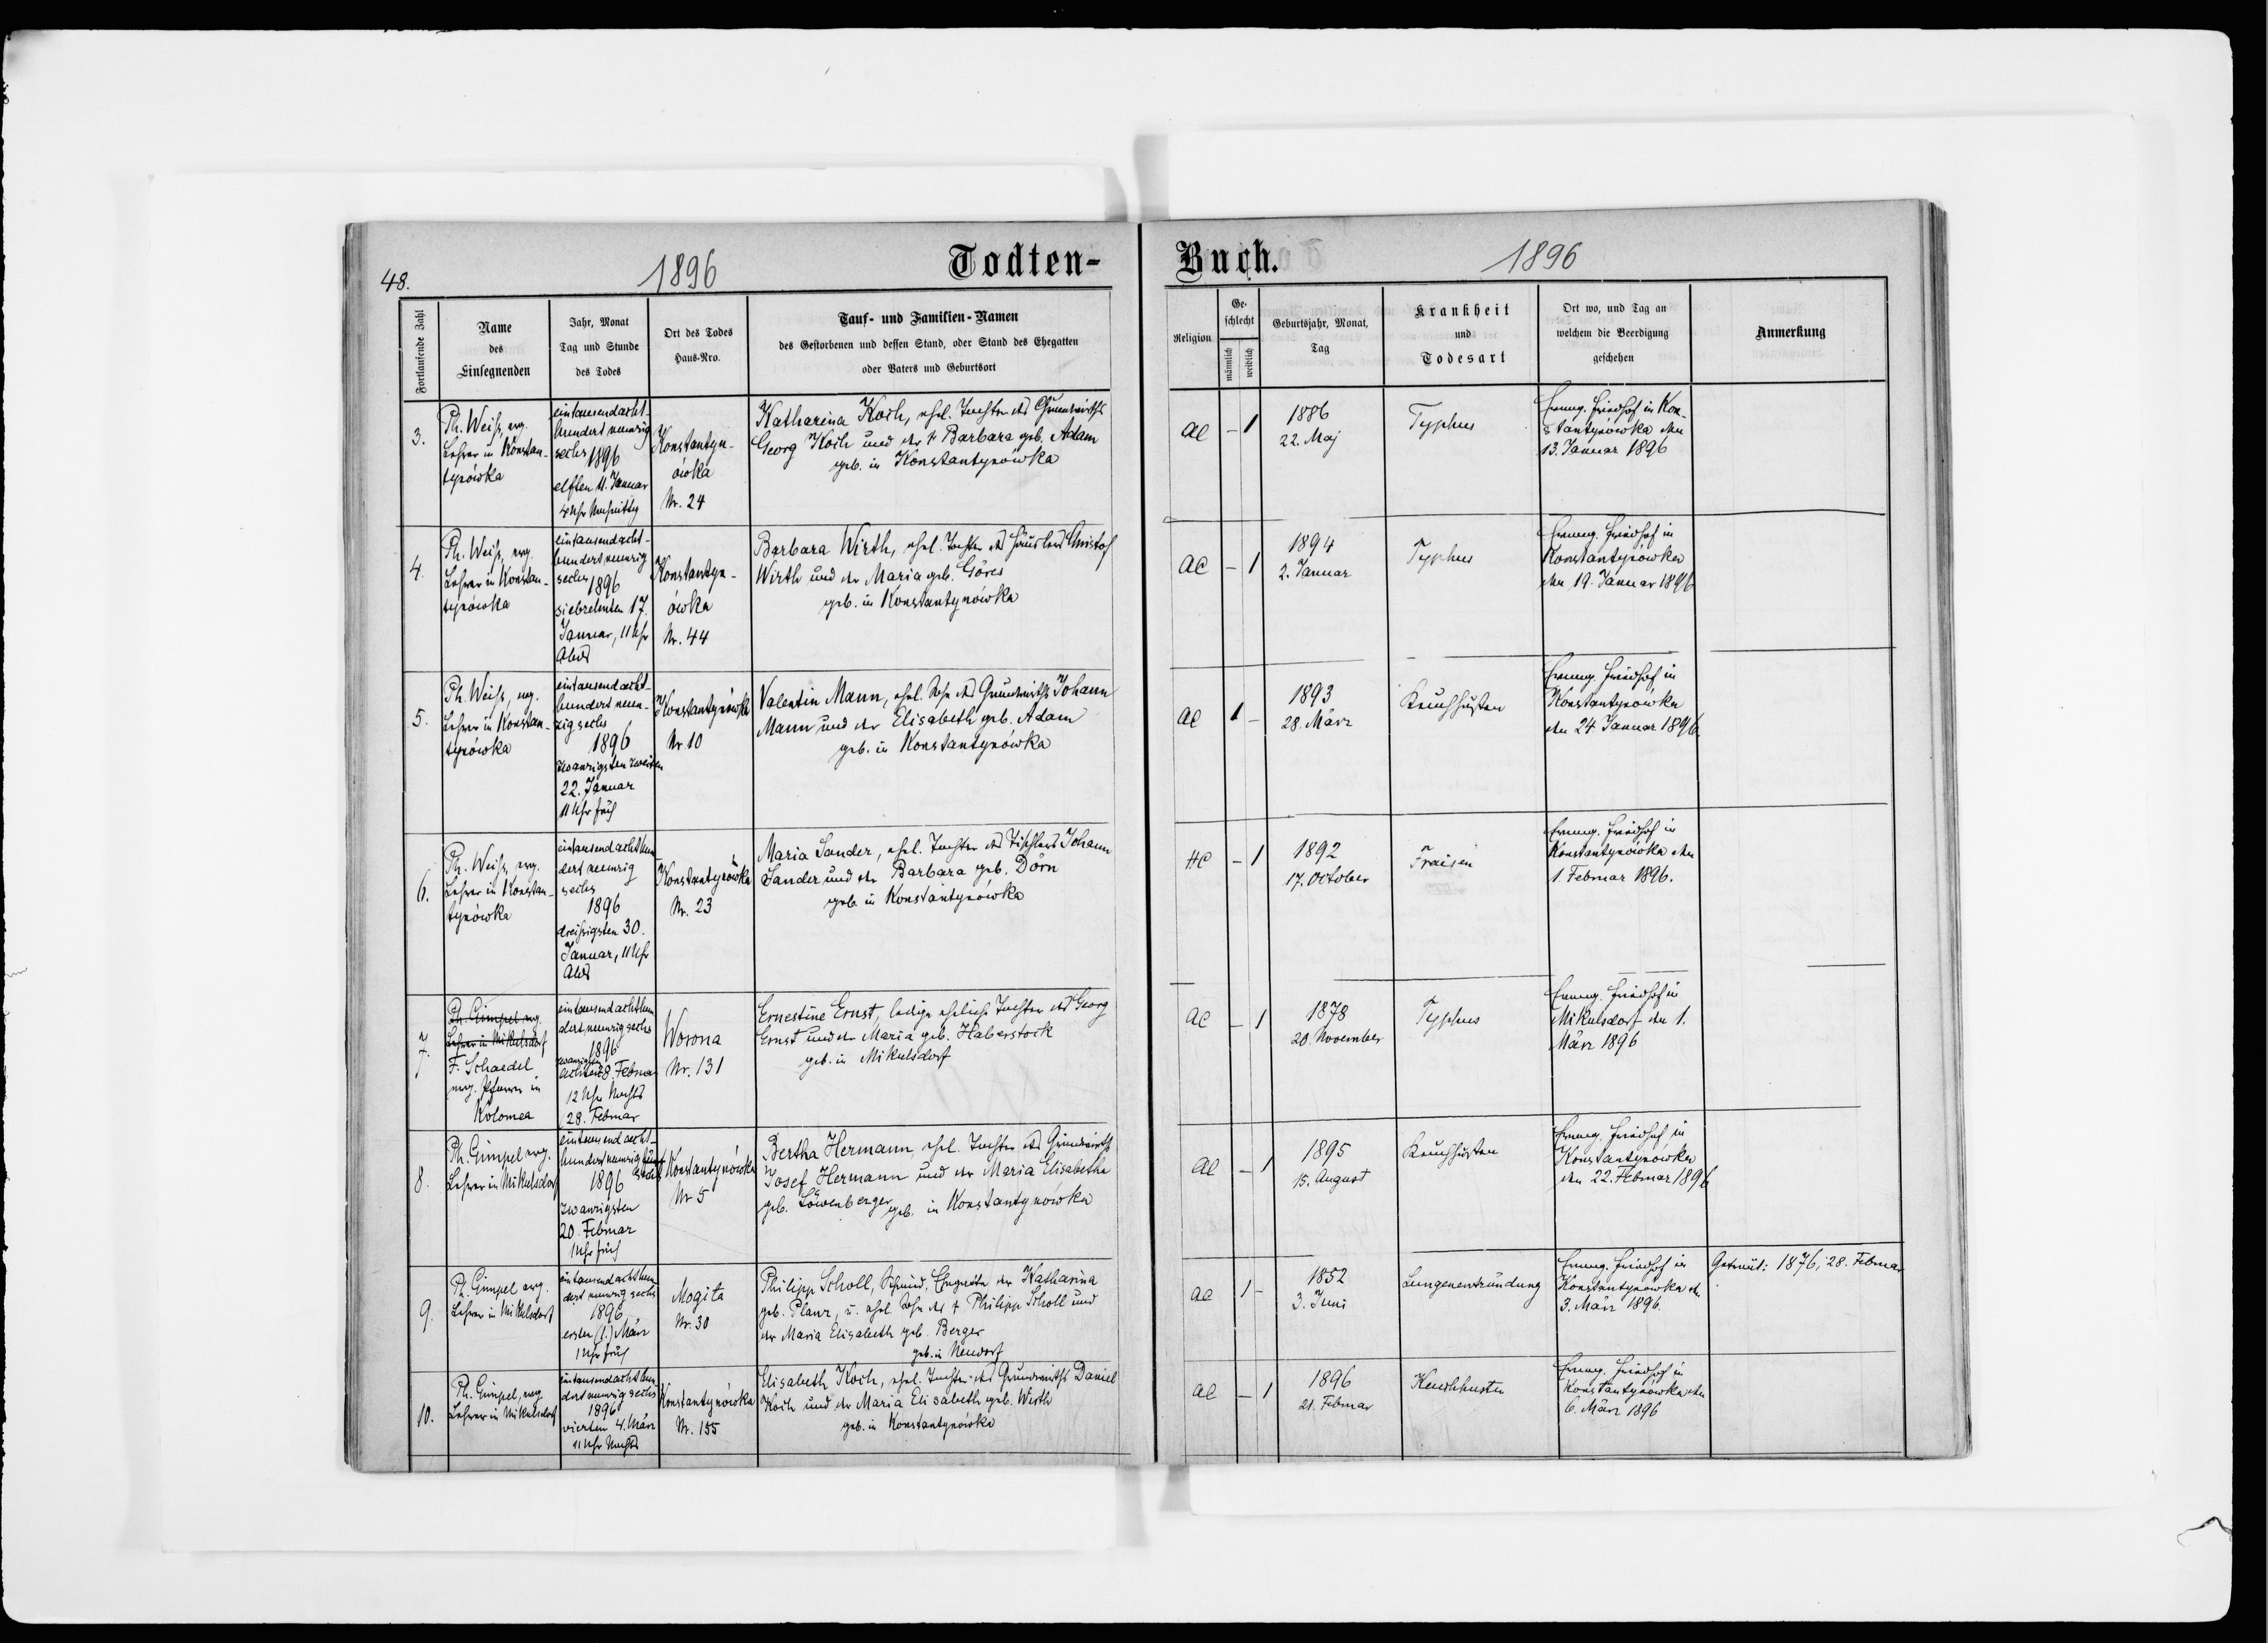 48.
1896
Todten-
Buch.
1896
Fortlaufende Zahl
Name
des
Einsegnenden
Jahr, Monat
Tag und Stunde
des Todes
Ort des Todes
Haus-Nro.
Tauf- und Familien-Namen
des Gestorbenen und dessen Stand, oder Stand des Ehegatten
oder Vaters und Geburtsort
Religion
Ge-
schlecht
männlich
weiblich
Geburtsjahr, Monat,
Tag
Krankheit
und
Todesart
Ort wo, und Tag an
welchem die Beerdigung
geschehen
Anmerkung
3.
Ph. Weiß, evg.
Lehrer in Konstan-
tynówka
eintausendacht-
hundert neunzig
sechs 1896
elften 11. Januar
4 Uhr
Konstantyn-
ówka
Nr. 24
Katharina Koch, ehel. Tochter des Grundwirths
Georg Koch und der † Barbara geb. Adam
geb. in Konstantynówka
AC
- 1
1886
22. Maj
Typhus
Evang. Friedhof in Kon-
stantynówka den
13. Januar 1896
4.
Ph. Weiß, evg.
Lehrer in Konstan-
tynówka
eintausendacht-
hundert neunzig
sechs 1896
siebzehnten 17.
Januar, 11 Uhr
Abds
Konstantyn-
ówka
Nr. 44
Barbara Wirth, ehel. Tochter des Häuslers Christof
Wirth und der Maria geb. Göres
geb. in Konstantynówka
AC
- 1
1894
2. Januar
Typhus
Evang. Friedhof in
Konstantynówka
den 19. Januar 1896
5.
Ph. Weiß, evg.
Lehrer in Konstan-
tynówka
eintausendacht-
hundert neun-
zig sechs
1896
zwanzigsten zweiten
22. Januar
11 Uhr früh
Konstantynówka
Nr 10
Valentin Mann, ehel. Sohn des Grundwirths Johann
Mann und der Elisabeth geb. Adam
geb. in Konstantynówka
AC
1 -
1893
28. März
Keuchhusten
Evang. Friedhof in
Konstantynówka
den 24. Januar 1896.
6.
Ph. Weiß, evg.
Lehrer in Konstan-
tynówka
eintausendachthun-
dert neunzig
sechs
1896
dreißigsten 30.
Januar, 11 Uhr
Abds
Konstantynówka
Nr. 23
Maria Sander, ehel. Tochter des Tischlers Johann
Sander und der Barbara geb. Dörn
geb. in Konstantynówka
HC
- 1
1892
17. October
Fraisen
Evang. Friedhof in
Konstantynówka den
1. Februar 1896.
7.
Ph. Gimpel evg.
Lehrer in Mikulsdorf
F. Schaedel
evg. Pfarrer in
Kolomea
eintausendachthun-
dert neunzig sechs
1896
zwanzigsten
achten 28. Februar
12 Uhr Nachts
28. Februar
Worona
Nr. 131
Ernestine Ernst, ledige eheliche Tochter des Georg
Ernst und der Maria geb. Haberstock
geb. in Mikulsdorf
AC
- 1
1878
20. November
Typhus
Evang. Friedhof in
Mikulsdorf den 1.
März 1896
8.
Ph. Gimpel evg.
Lehrer in Mikulsdorf
eintausendacht-
hundert neunzig
sechs
1896
zwanzigsten
20. Februar
1 Uhr früh
Konstantynówka
Nr 5
Bertha Hermann, ehel. Tochter des Grundwirths
Josef Hermann und der Maria Elisabetha
geb. Löwenberger geb. in Konstantynówka
AC
- 1
1895
15. August
Keuchhusten
Evang. Friedhof in
Konstantynówka
den 22. Februar 1896
9.
Ph. Gimpel evg.
Lehrer in Mikulsdorf
eintausendachthun-
dert neunzig sechs
1896
ersten (1.) März
1 Uhr früh
Mogita
Nr. 30
Philipp Scholl, Schmied, Ehegatte der Katharina
geb. Planz, u. ehel. Sohn des † Philipp Scholl und
der Maria Elisabeth geb. Berger
geb. in Neudorf
AC
1 -
1852
3. Juni
Lungenentzündung
Evang. Friedhof in
Konstantynówka den
3. März 1896.
Getraut: 1876, 28. Februar
10.
Ph. Gimpel, evg.
Lehrer in Mikulsdorf
eintausendachthun-
dert neunzig sechs
1896
vierten 4. März
11 Uhr Nachts
Konstantynówka
Nr. 155
Elisabeth Koch, ehel. Tochter des Grundwirths Daniel
Koch und der Maria Elisabeth geb. Wirth
geb. in Konstantynówka
AC
- 1
1896
21. Februar
Keuchhusten
Evang. Friedhof in
Konstantynówka den
6. März 1896